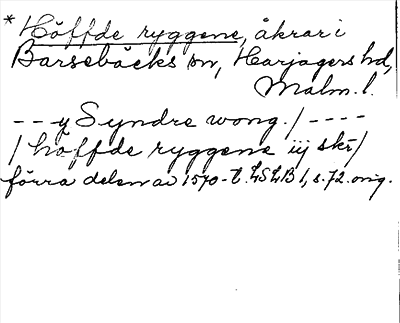 * Höffde ryggene, åkrar i
Barsebäcks sn, Harjagers hd,
Malm. l.
- - y Syndre wong. / - - - -
/ höffde ryggene iij skr /
förra delen av 1570-t. LSLB 1, s. 72. orig.